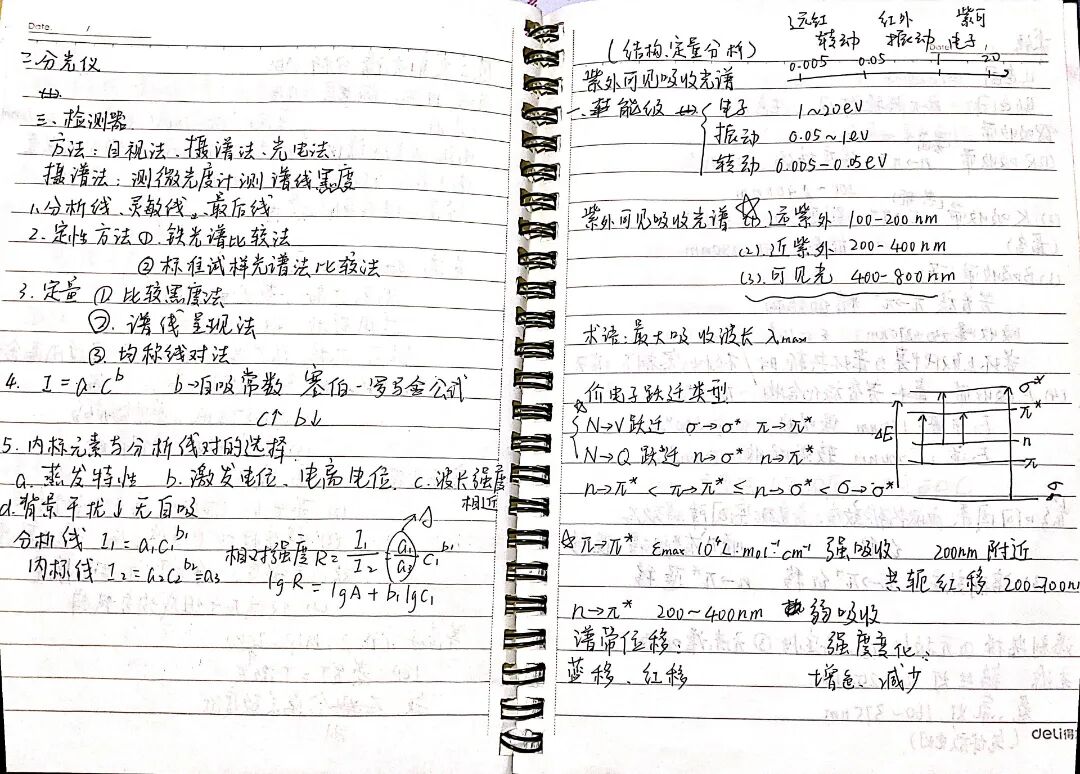 Date /
二分光仪
三、检测器
方法：目视法、摄谱法、光电法
摄谱法：测微光度计测谱线黑度
1、分析线、灵敏线、最后线
2.定性方法① 铁光谱比较法
②标准试样光谱法比较法
3.定量 ①比较黑度法
②. 谱线呈现法
③.均称线对法
4. I=a·c^b b→自吸常数 赛伯-罗马金公式
c↑ b↓
5.内标元素与分析线对的选择
a.蒸发特性 b.激发电位、电离电位. c.波长强度
相近
d.背景干扰↓无自吸
分析线 I₁=a₁c₁^b₁ 相对强度R= I₁/I₂ = a₁/a₂ c₁^b₁ → A
内标线 I₂=a₂c₂^b₂=a₃ lgR = lgA+b₁lgc₁
远红 红外 紫可
转动 振动 电子
(结构、定量分析) 0.005 0.05 1 20
紫外可见吸收光谱
一、能级 电子 1~20eV
振动 0.05~1eV
转动 0.005-0.05eV
紫外可见吸收光谱 ☆ (1).远紫外 100-200nm
(2).近紫外 200-400nm
(3).可见光 400-800nm
术语:最大吸收波长 λmax
价电子跃迁类型
☆ N→V跃迁 σ→σ* π→π*
N→Q跃迁 n→σ* n→π*
n→π* < π→π* ≤ n→σ* < σ→σ*
ΔE σ* π* n π σ
☆ π→π* εmax 10⁴L·mol⁻¹·cm⁻¹ 强吸收 200nm附近
共轭红移 200-700nm
n→π* 200~400nm 弱吸收
谱带位移: 强度变化:
蓝移、红移 增色、减少
deli得